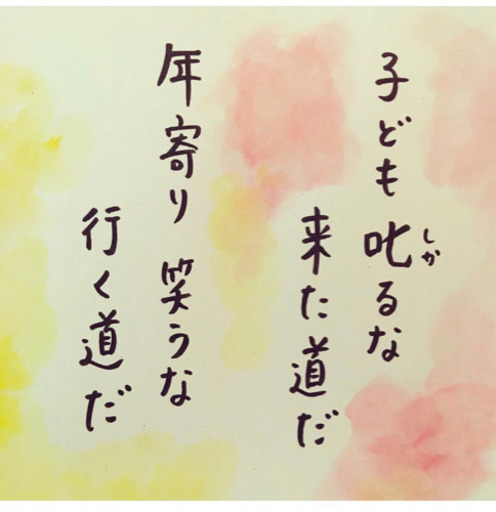 子ども叱るな
しか
来た道だ
年寄り 笑うな
行く道だ